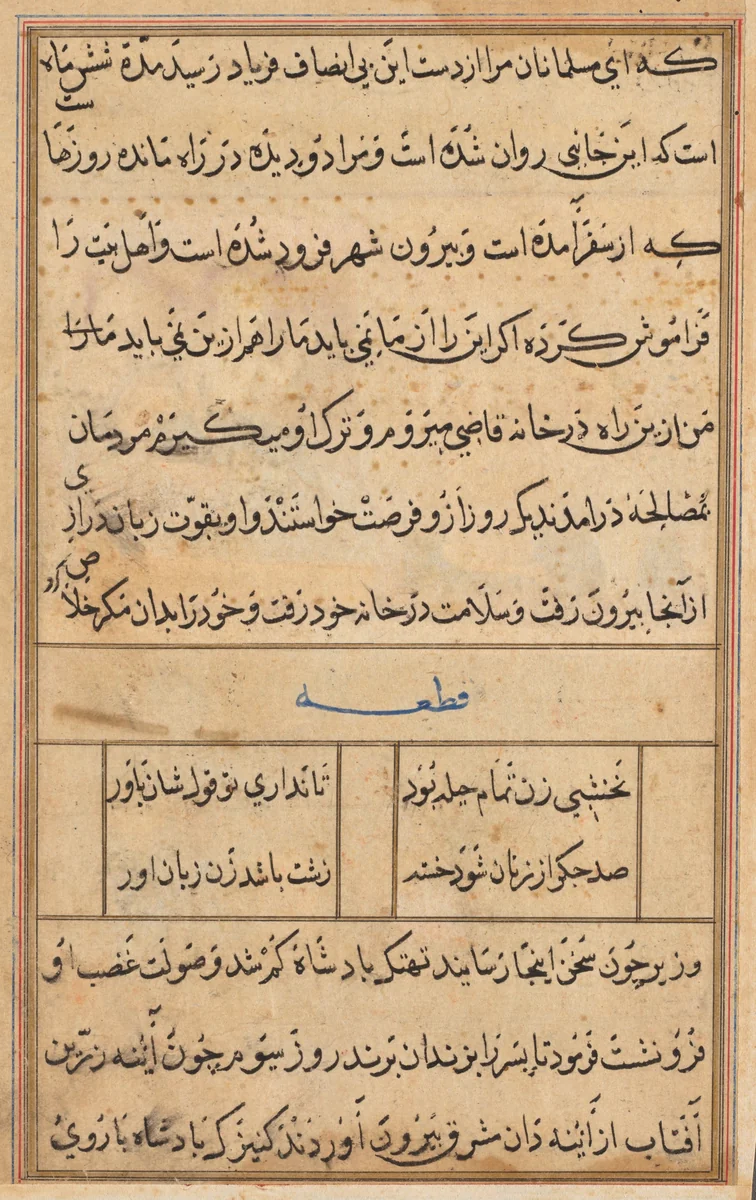 که ای مسلمانان مرا از دست این بی انصاف فریاد رسید مدة شش ماه
ست
است که این جانبی روان شده است و مرا دو دیده در راه مانده روزها
که از سفر آمده است و بیرون شهر فرود شده است و اهل بیت را
فراموش کرده اکر این را از ما نمی باید ما را هم ازین نمی باید ما را
من ازین راه در خانه قاضی میروم و ترک او میکیرم مردمان
ی
بمصالحه درامدند یک روز ازو فرصت خواستند و او بقوّت زبان دراز
ص کرد
از آنجا بیرون رفت و سلامت در خانه خود رفت و خود را بدان مکر خلا
قطعه
نخشبی زن تمام حیله بود
تا نداری تو قول شان باور
صد جکر از زنان شود خسته
زشت باشد زن زبان اور
وزیر چون سخن اینجا رسایند تهتک بادشاه کم شد و صولت غضب او
فرو نشست فرمود تا پسر را بزندان برند روز سیوم چون آئنه زرّین
آفتاب از آئینه دان مشرق بیرون آوردند کنیزک با دشاه با روی